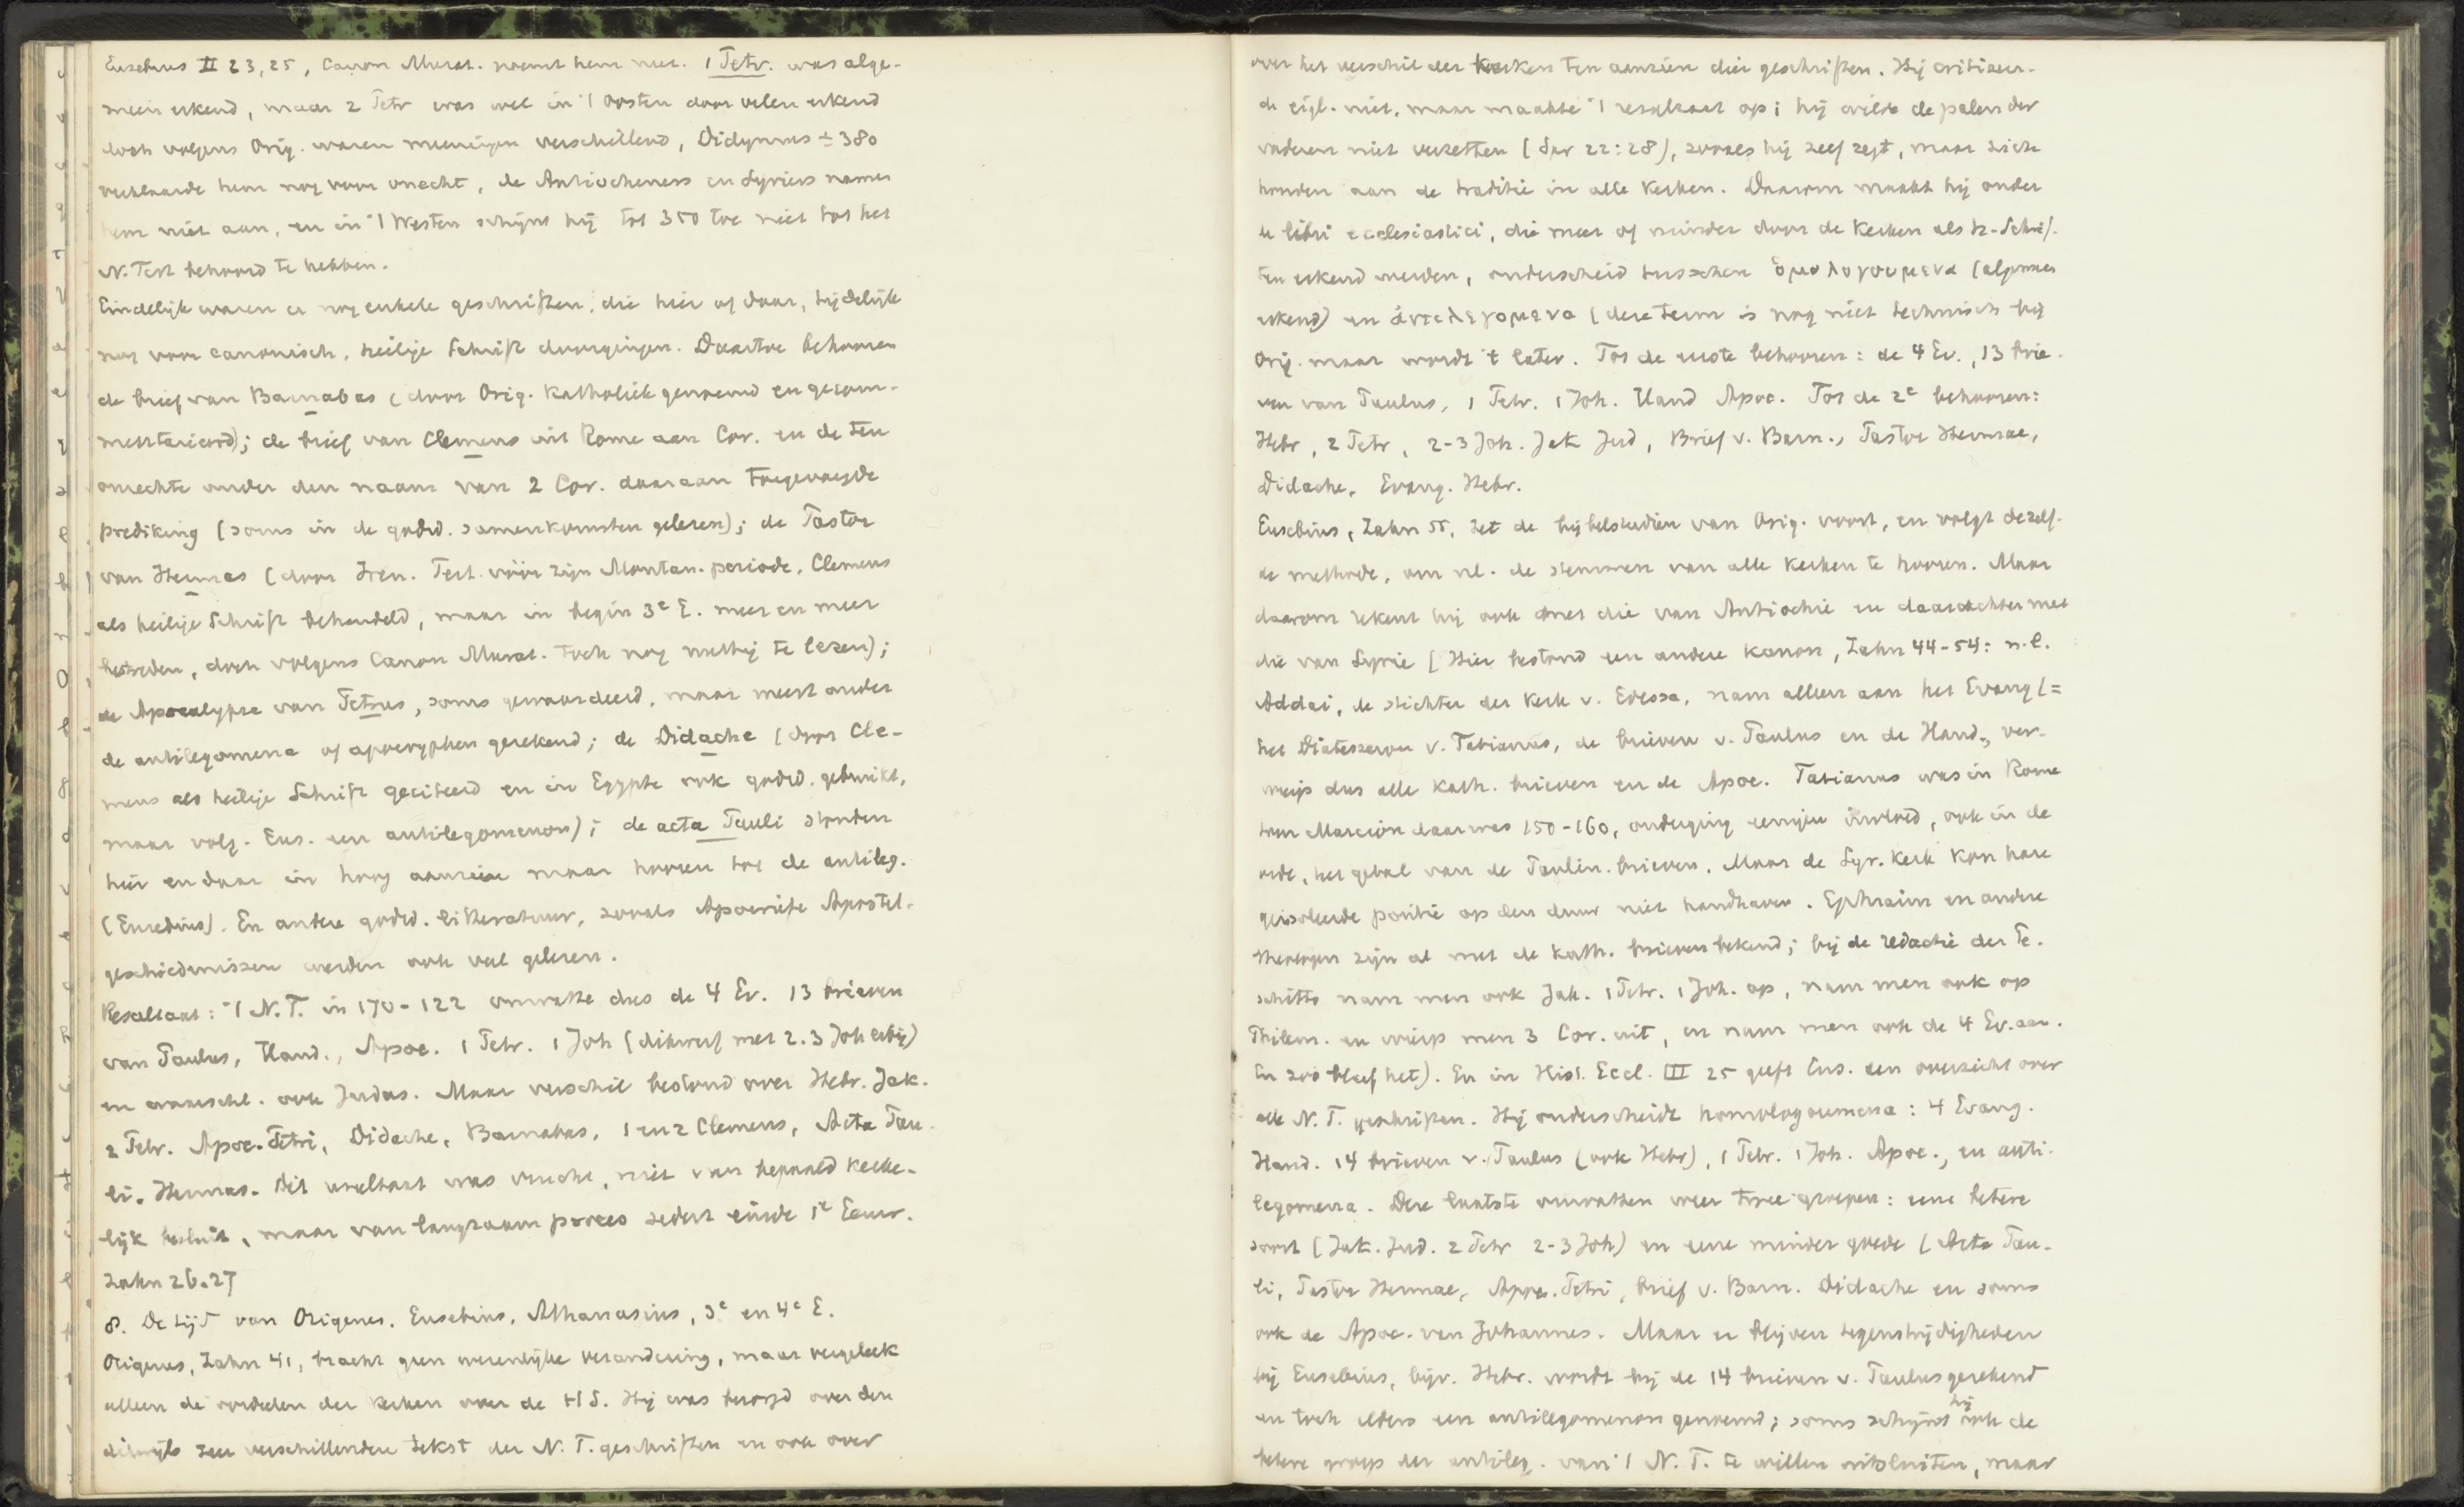 Eusebius II 23, 25, Canon Murat. noemt hem niet. 1 Petr. was alge-
meen erkend, maar 2 Petr was wel in 't Oosten door velen erkend
doch volgens Orig. waren meeningen verschillend, Didymus ± 380
verklaarde hem nog voor onecht, de Antiocheners en Syriers namen
hem niet aan, en in 't Westen schijnt hij tot 350 toe niet tot het
N. Test behoord te hebben.
Eindelijk waren er nog enkele geschriften, die hier of daar, tijdelijk
nog voor canonisch, heilige Schrift doorgingen. Daartoe behooren
de brief van Barnabas (door Orig. Katholiek genoemd en gecom-
mentarieerd); de brief van Clemens uit Rome aan Cor. en de ten
onrechte onder den naam van 2 Cor. daaraan toegevoegde
prediking (soms in de godsd. samenkomsten gelezen); de Pastor
van Hermas (door Iren. Tert. vóór zijn Montan. periode, Clemens
als heilige Schrift behandeld, maar in begin 3e E. meer en meer
bestreden, doch volgens Canon Murat. toch nog nuttig te lezen);
de Apocalypse van Petrus, soms gewaardeerd, maar meest onder
de antilegomena of apocryphen gerekend; de Didache (door Cle-
mens als heilige Schrift geciteerd en in Egypte ook godsd. gebruikt,
maar volg. Eus. een antilegomenon); de acta Pauli stonden
hier en daar in hoog aanzien maar hooren tot de antileg.
(Eusebius). En andere godsd. litteratuur, zooals Apocriefe Apostel-
geschiedenissen werden ook veel gelezen.
Resultaat: 't N. T. in 170-122 omvatte dus de 4 Ev. 13 brieven
van Paulus, Hand., Apoc. 1 Petr. 1 Joh (dikwerf met 2. 3 Joh erbij)
en waarschl. ook Judas. Maar verschil bestond over Hebr. Jak.
2 Petr. Apoc. Petri, Didache, Barnabas, 1 en 2 Clemens, Acta Pau-
li. Hermas. Dit resultaat was vrucht, niet van bepaald kerke-
lijk besluit, maar van langzaam proces sedert einde 1e Eeuw.
Zahn 26. 27
8. De tijd van Origenes. Eusebius, Athanasius, 3e en 4e E.
Origenes, Zahn 41, bracht geen wezenlijke verandering, maar vergeleek
alleen de oordelen der kerken over de HS. Hij was bezorgd over den
dikwijls zeer verschillenden tekst der N. T. geschriften en ook over
over het verschil der kerken ten aanzien dier geschriften. Hij critiseer-
de eigl. niet, maar maakte 't resultaat op; hij wilde de palen der
vaderen niet verzetten (Spr 22:28), zooals hij zelf zegt, maar zich
houden aan de traditie in alle kerken. Daarom maakt hij onder
de libri ecclesiastici, die meer of minder door de kerken als H. Schrif-
ten erkend werden, onderscheid tusschen ὁμολογουμενα (algemeen
erkend) en ἀντιλεγομενα (deze term is nog niet technisch bij
Orig. maar wordt 't later. Tot de eerste behooren: de 4 Ev., 13 brie-
ven van Paulus, 1 Petr. 1 Joh. Hand Apoc. Tot de 2e behooren:
Hebr, 2 Petr, 2-3 Joh. Jak Jud, Brief v. Barn., Pastor Hermae,
Didache, Evang. Hebr.
Eusebius, Zahn 55, zet de bijbelstudiën van Orig. voort, en volgt dezelf-
de methode, om nl. de stemmen van alle kerken te hooren. Maar
daarom rekent hij ook met die van Antiochië en daarachter met
die van Syrië (Hier bestond een andere kanon, Zahn 44-54: n.l.
Addai, de stichter der kerk v. Edessa, nam alleen aan het Evang (=
het Diatessaron v. Tatianus, de brieven v. Paulus en de Hand., ver-
wierp dus alle kath. brieven en de Apoc. Tatianus was in Rome
toen Marcion daar was 150-160, onderging eenigen invloed, ook in de
orde, het getal van de Paulin. brieven. Maar de Syr. Kerk kon hare
geisoleerde positie op den duur niet handhaven. Ephraim en andere
theologen zijn al met de kath. brieven bekend; bij de redactie der Pe-
schitto nam men ook Jak. 1 Petr. 1 Joh. op, nam men ook op
Philem. en wierp men 3 Cor. uit, en nam men ook de 4 Ev. aan.
En zoo bleef het). En in Hist. Eccl. III 25 geeft Eus. een overzicht over
alle N. T. geschriften. Hij onderscheidt homologoumena: 4 Evang.
Hand. 14 brieven v. Paulus (ook Hebr), 1 Petr. 1 Joh. Apoc., en anti-
legomena. Deze laatste omvatten weer twee groepen: eene betere
soort (Jak. Jud. 2 Petr 2-3 Joh) en eene minder goede (Acta Pau-
li, Pastor Hermae, Apoc. Petri, brief v. Barn. Didache en soms
ook de Apoc. van Johannes. Maar er blijven tegenstrijdigheden
bij Eusebius, bijv. Hebr. wordt bij de 14 brieven v. Paulus gerekend
en toch elders een antilegomenon genoemd; soms schijnt hij ook de
betere groep der antileg. van 't N. T. te willen uitsluiten, maar